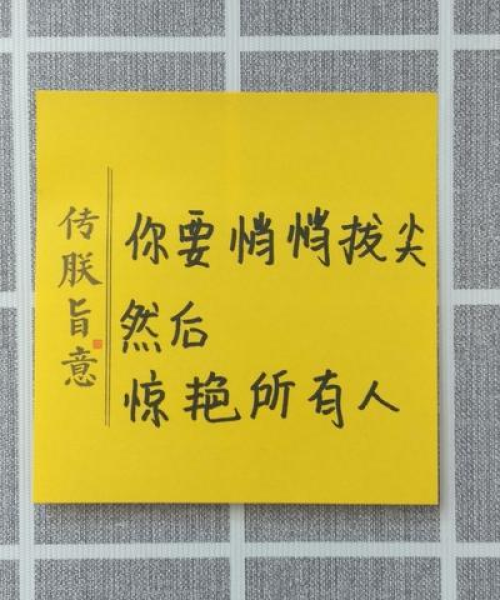 传朕旨意
你要悄悄拔尖
然后
惊艳所有人